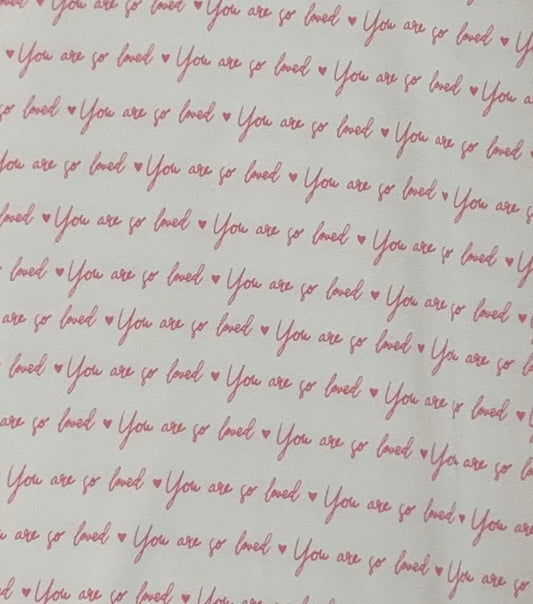 loved ♥ You are so loved ♥ You are so loved ♥ You are so loved ♥ Y
♥ You are so loved ♥ You are so loved ♥ You are so loved ♥ You a
so loved ♥ You are so loved ♥ You are so loved ♥ You are so loved ♥
You are so loved ♥ You are so loved ♥ You are so loved ♥ You are s
loved ♥ You are so loved ♥ You are so loved ♥ You are so loved ♥ Y
loved ♥ You are so loved ♥ You are so loved ♥ You are so loved ♥
are so loved ♥ You are so loved ♥ You are so loved ♥ You are so l
loved ♥ You are so loved ♥ You are so loved ♥ You are so loved ♥
are so loved ♥ You are so loved ♥ You are so loved ♥ You are so lo
You are so loved ♥ You are so loved ♥ You are so loved ♥ You are
are so loved ♥ You are so loved ♥ You are so loved ♥ You are so
♥ You are so loved ♥ You are so